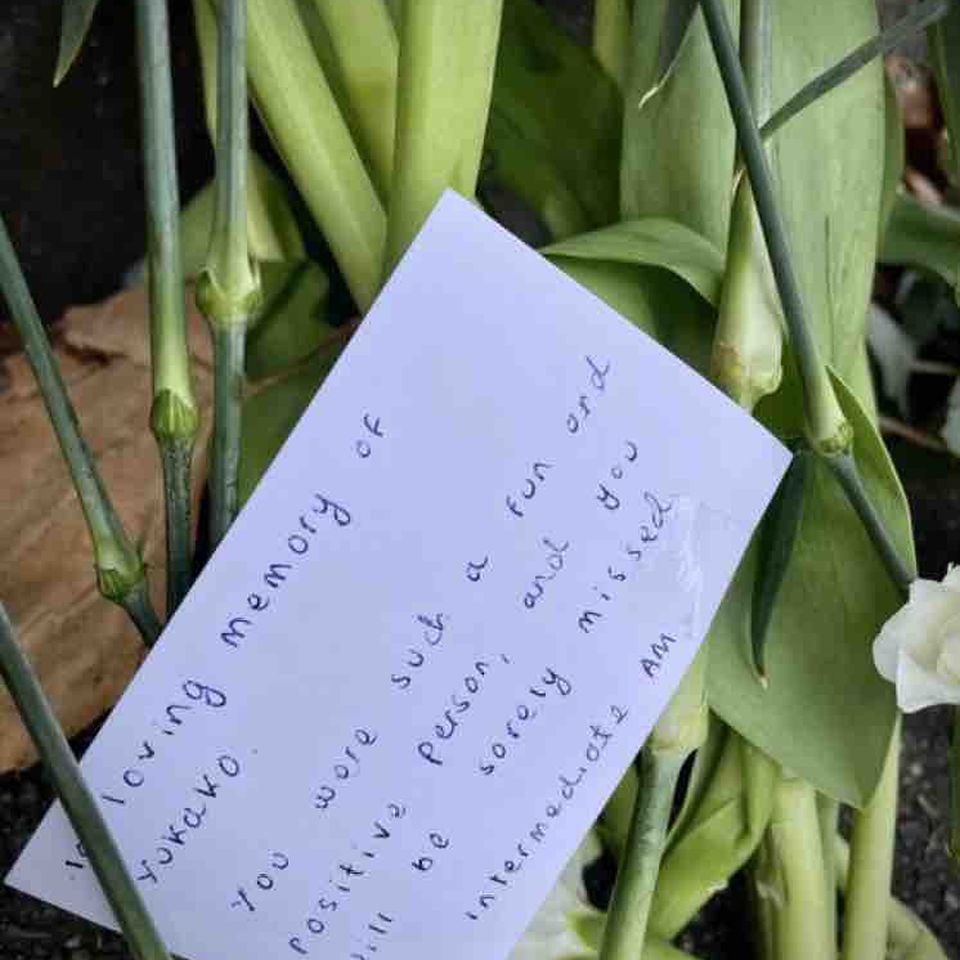 In loving memory of
Yukako.
You were such a fun and
positive person, and you
will be sorely missed
Intermediate AM